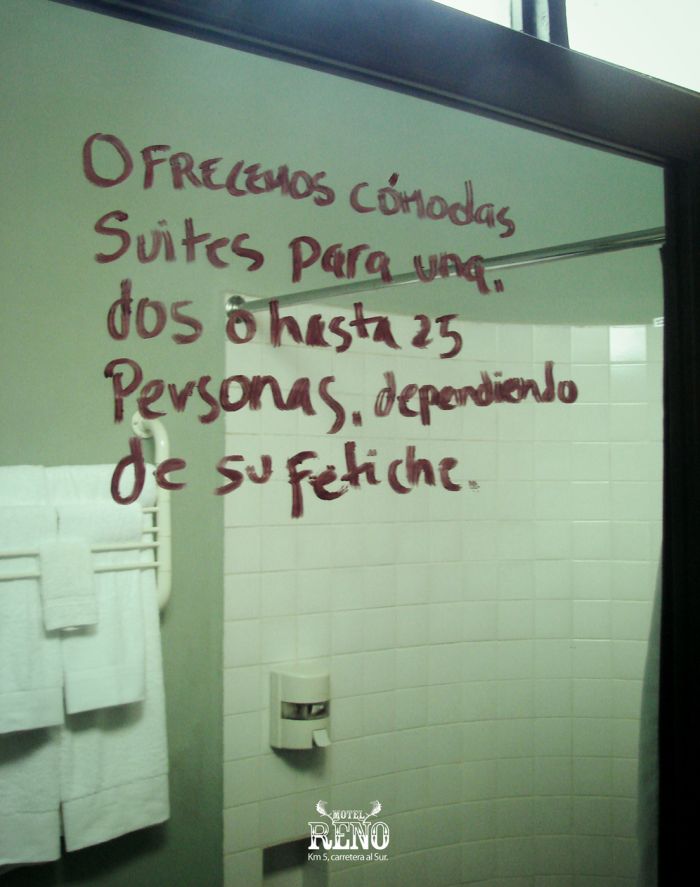 OFRECEMOS CÓMOdAS
Suites para una,
dos o hasta 25
Personas, dependiendo
de su fetiche.
MOTEL
RENO
Km 5, carretera al Sur.